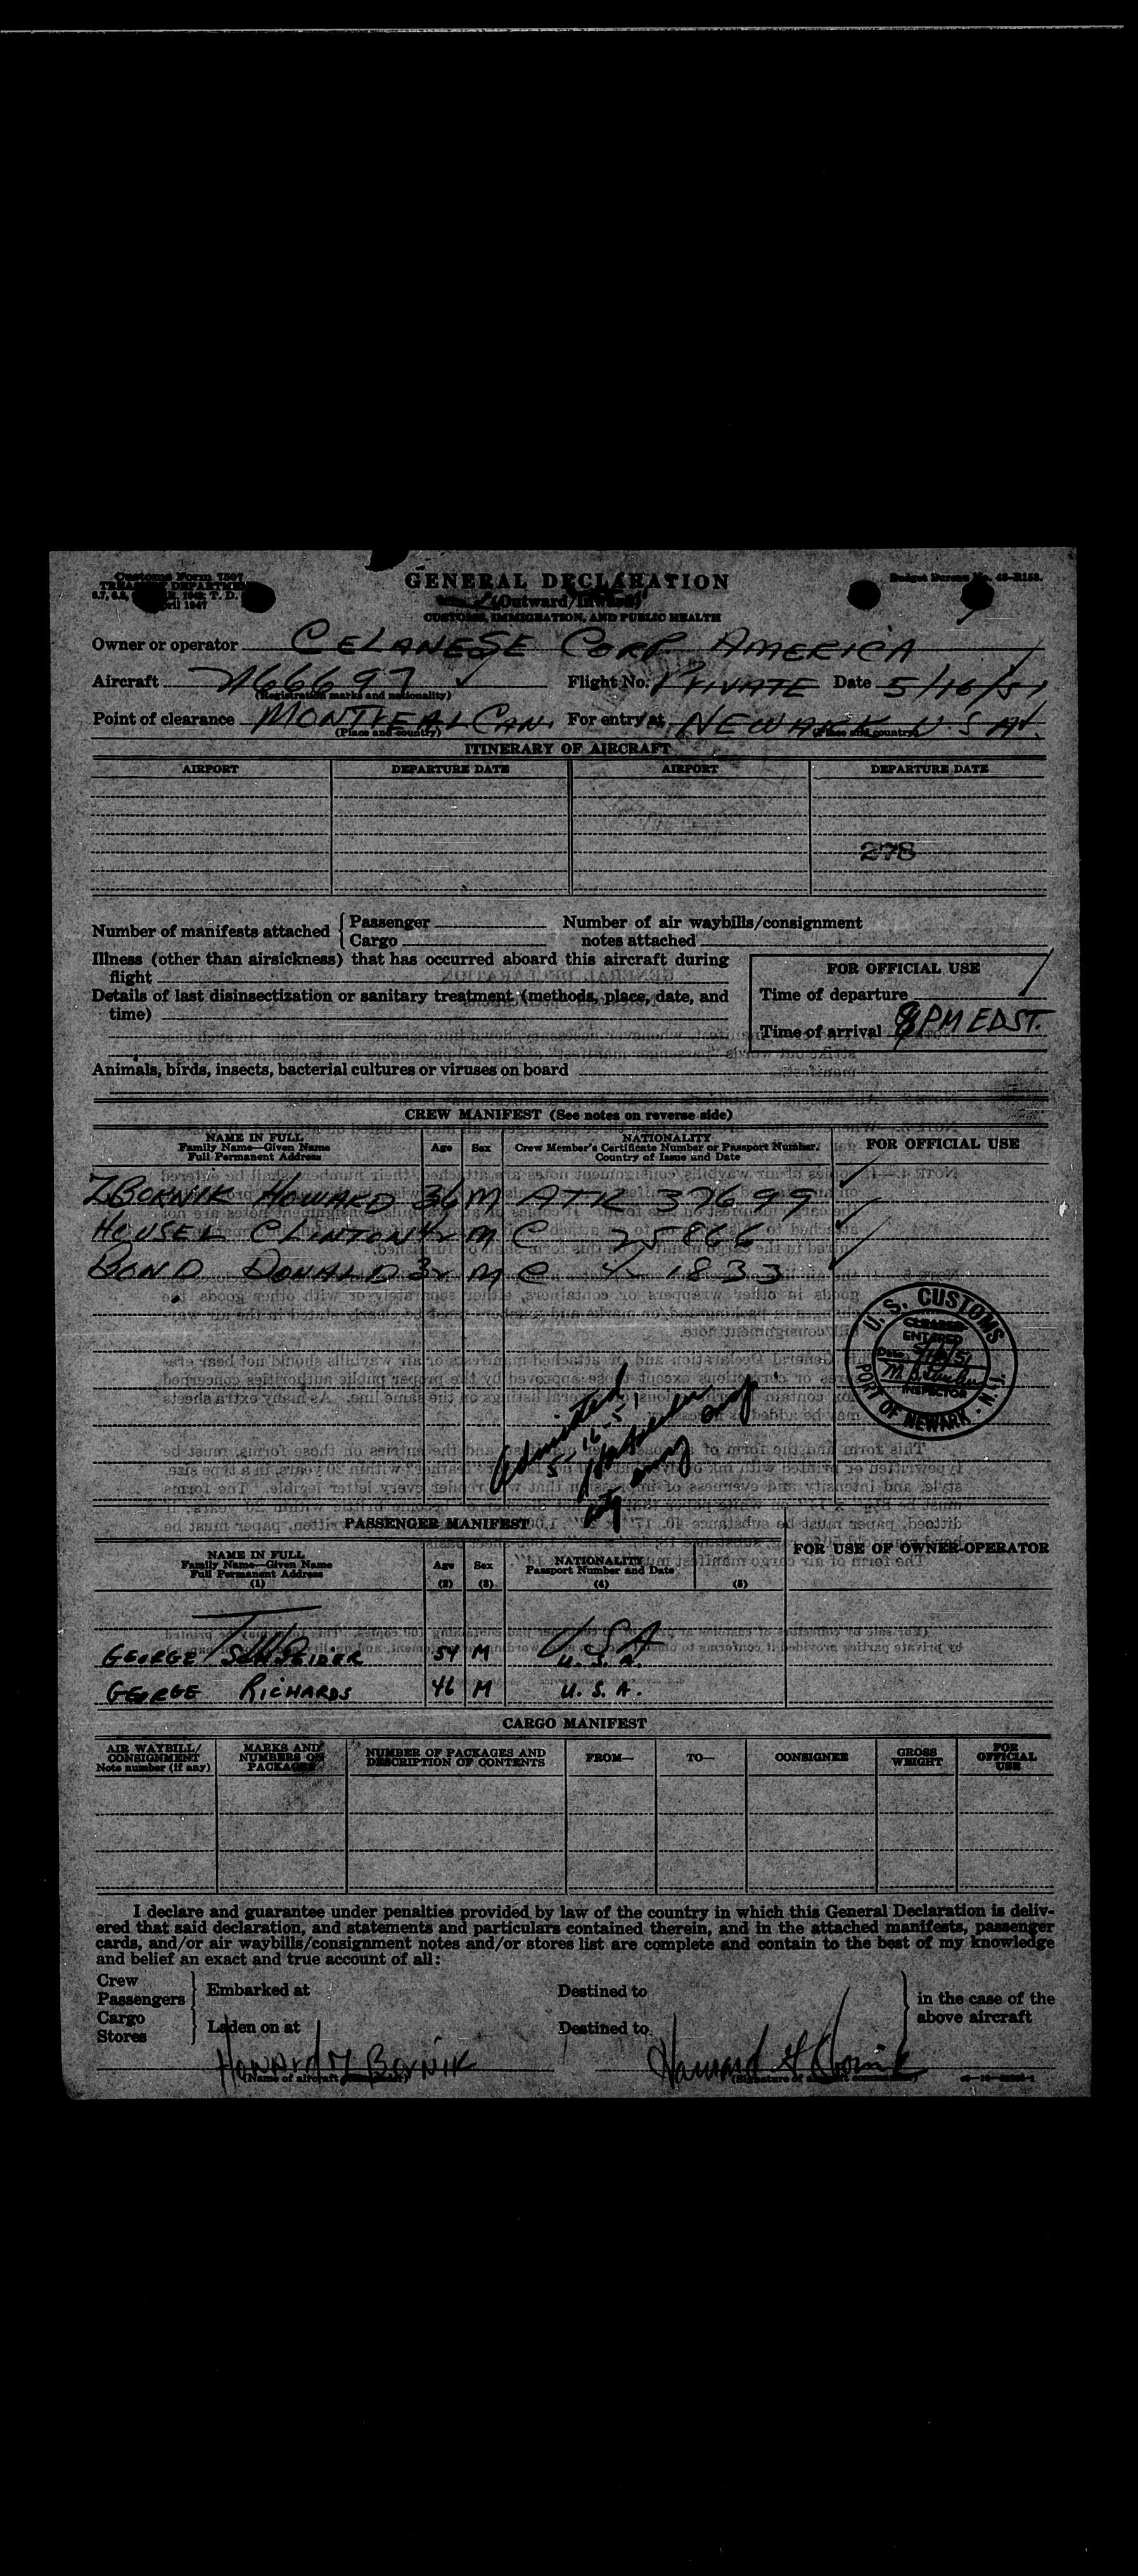 Customs Form 7507
TREASURY DEPARTMENT
GENERAL DECLARATION
Budget Bureau No. 48-R153.
(Outward/Inward)
April 1947
CUSTOMS, IMMIGRATION, AND PUBLIC HEALTH
Owner or operator CELANESE CORP AMERICA
Aircraft N66697 Flight No. PRIVATE Date 5/16/51
(Registration marks and nationality)
Point of clearance MONTREAL CAN. For entry at NEWARK U.S.A.
(Place and country) (Place and country)
ITINERARY OF AIRCRAFT
AIRPORT DEPARTURE DATE AIRPORT DEPARTURE DATE
278
Number of manifests attached { Passenger Number of air waybills/consignment
Cargo notes attached
Illness (other than airsickness) that has occurred aboard this aircraft during
flight
FOR OFFICIAL USE
Details of last disinsectization or sanitary treatment (methods, place, date, and
time)
Time of departure
Time of arrival 8 PM EDST.
Animals, birds, insects, bacterial cultures or viruses on board
CREW MANIFEST (See notes on reverse side)
NAME IN FULL
Family Name—Given Name
Full Permanent Address
Age Sex
NATIONALITY
Crew Member's Certificate Number or Passport Number.
Country of Issue and Date
FOR OFFICIAL USE
ZBORNIK HOWARD 36 M ATR 37699
HOUSEL CLINTON 42 M C 25866
BOND DONALD 32 M C 1833
U.S. CUSTOMS
CLEARED
ENTERED
Date 5/16/51
INSPECTOR
PORT OF NEWARK - N.J.
Admitted
5-16-51
PASSENGER MANIFEST
FOR USE OF OWNER-OPERATOR
NAME IN FULL
Family Name—Given Name
Full Permanent Address
(1)
Age
(2)
Sex
(3)
NATIONALITY
Passport Number and Date
(4) (5)
USA
GEORGE SCHNEIDER 54 M U.S.A.
GEORGE RICHARDS 46 M U.S.A.
CARGO MANIFEST
AIR WAYBILL/
CONSIGNMENT
Note number (if any)
MARKS AND
NUMBERS ON
PACKAGES
NUMBER OF PACKAGES AND
DESCRIPTION OF CONTENTS
FROM— TO— CONSIGNEE
GROSS
WEIGHT
FOR
OFFICIAL
USE
I declare and guarantee under penalties provided by law of the country in which this General Declaration is deliv-
ered that said declaration, and statements and particulars contained therein, and in the attached manifests, passenger
cards, and/or air waybills/consignment notes and/or stores list are complete and contain to the best of my knowledge
and belief an exact and true account of all:
Crew
Passengers
Cargo
Stores
Embarked at Destined to
Laden on at Destined to
in the case of the
above aircraft